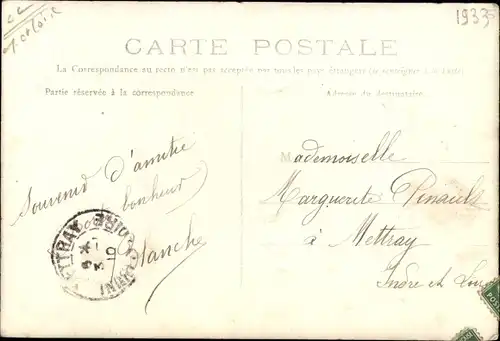 1933
CARTE POSTALE
La Correspondance au recto n'est pas acceptée par tous les pays étrangers (se renseigner à la Poste)
Partie réservée à la correspondance
Adresse du destinataire
Souvenir d'amitié
bonheur
Blanche
METTRAY
INDRE-ET-LOIRE
Mademoiselle
Marguerite Pinault
à Mettray
Indre et Loire